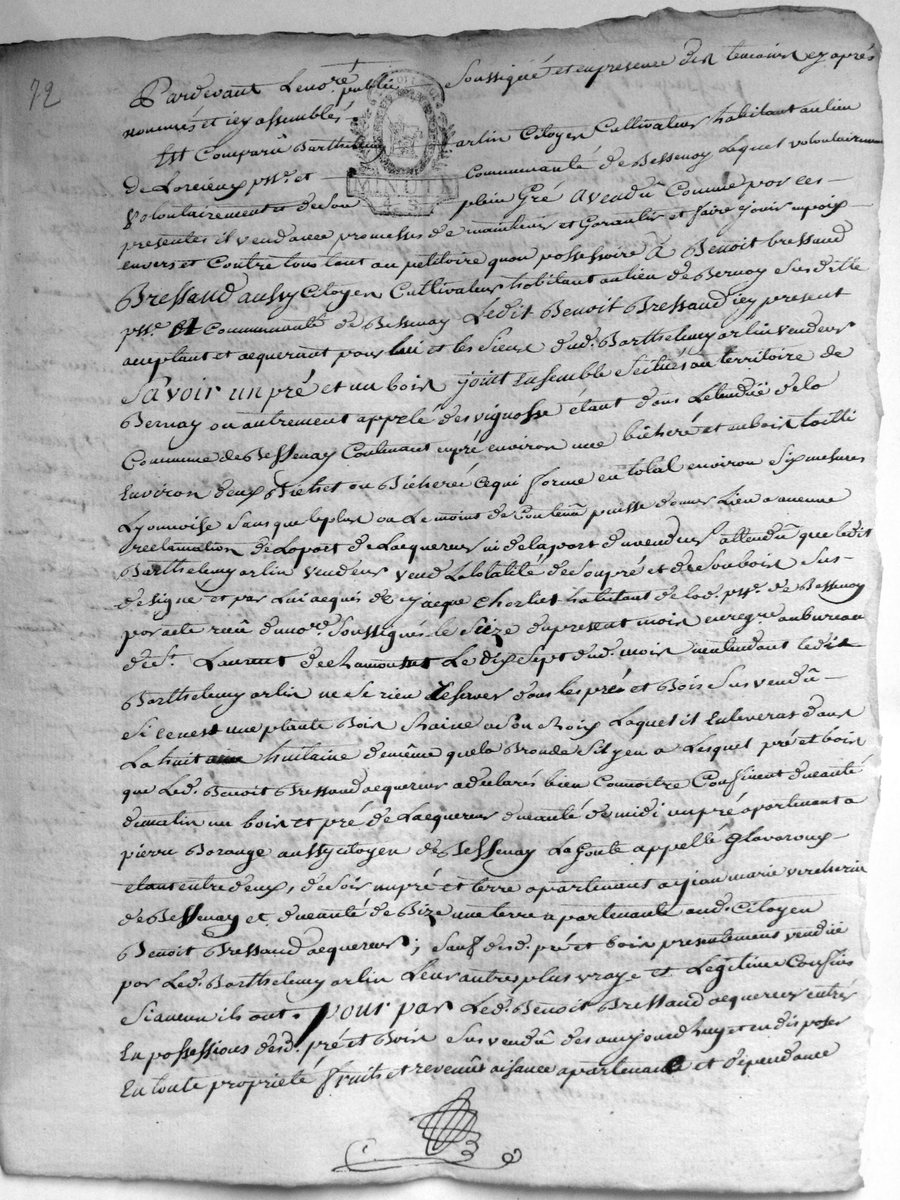 72
Pardevant Le no.re public soussigné et en presence des temoins cy après
nommés et icy assemblés.
Est Comparû Barthelemy arlin Citoyen Cultivateur habitant au lieu
de Lorcieux p.sse et Communauté de Bessenay Lequel volontairement
MINUTE
4 S
Volontairement et de son plein Gré a vendû Comme par ces
presentes il vend avec promesses de maintenir et Garantir et faire jouir en paix
envers et Contre tous tant au petitoire qu'on possessoire à Benoit bressaud
Bressaud aussy Citoyen Cultivateur habitant au lieu de Bernay susditte
p.sse et Communauté de Bessenay Ledit Benoit Bressaud icy present
acceptant et acquerant pour lui et les siens dud. Barthelemy arlin vendeur
Savoir un pré et un bois joint Ensemble scitués au territoire de
Bernay ou autrement appelé des vignosse étant dans L'etenduë de la
Commune de Bessenay Contenant en pré environ une bicheré et en bois tailli
Environ deux Bichet ou Bicheré ce qui forme en total environ six mesures
Lyonnoise sans que le plus ou Le moins de Contenu puisse donner Lieu a aucune
reclamation de La part de L'acquereur ni de la part du vendeur attendû que ledit
Barthelemy arlin vendeur vend La totalité de son pré et de son bois sus-
designé et par Lui acquis de jacque Chorliet habitant de lad. p.sse de Bessenay
par acte reçû du no.re soussignés le seize du present mois enregré au bureau
de S.t Laurent de chamousset Le dix sept dud. mois n'entendant ledit
Barthelemy arlin ne se rien reserver dans les pré et Bois sus vendû
si ce n'est une plante Bois chaine a son choix Laquel il Enleveras dans
La huit huitaine de même que la Bronda s'il y en a Lesquel pré et bois
que Led. Benoit Bressaud acquereur a declarés bien Connoitre Confinent du cauté
de matin un bois et pré de L'acquereur du cauté de midi un pré apartenant a
pierre Borange aussy citoyen de Bessenay La Goute appellé Glavaroux
etant entre deux, de soir un pré et terre apartenant a jean marie vircherin
de Bessenay et du cauté de Bize une terre apartenante aud. Citoyen
Benoit Bressaud acquereur; sauf desd. pré et bois presentement vendüe
par Led. Barthelemy arlin Leur autres plus vraye et Legitime Confins
si aucun ils ont. pour par Led. Benoit Bressaud acquereur entrer
En possessions desd. pré et Bois sus vendû des aujourd'huy et en disposer
En toute propriété fruits et revenûs aisance apartenance et dépendance